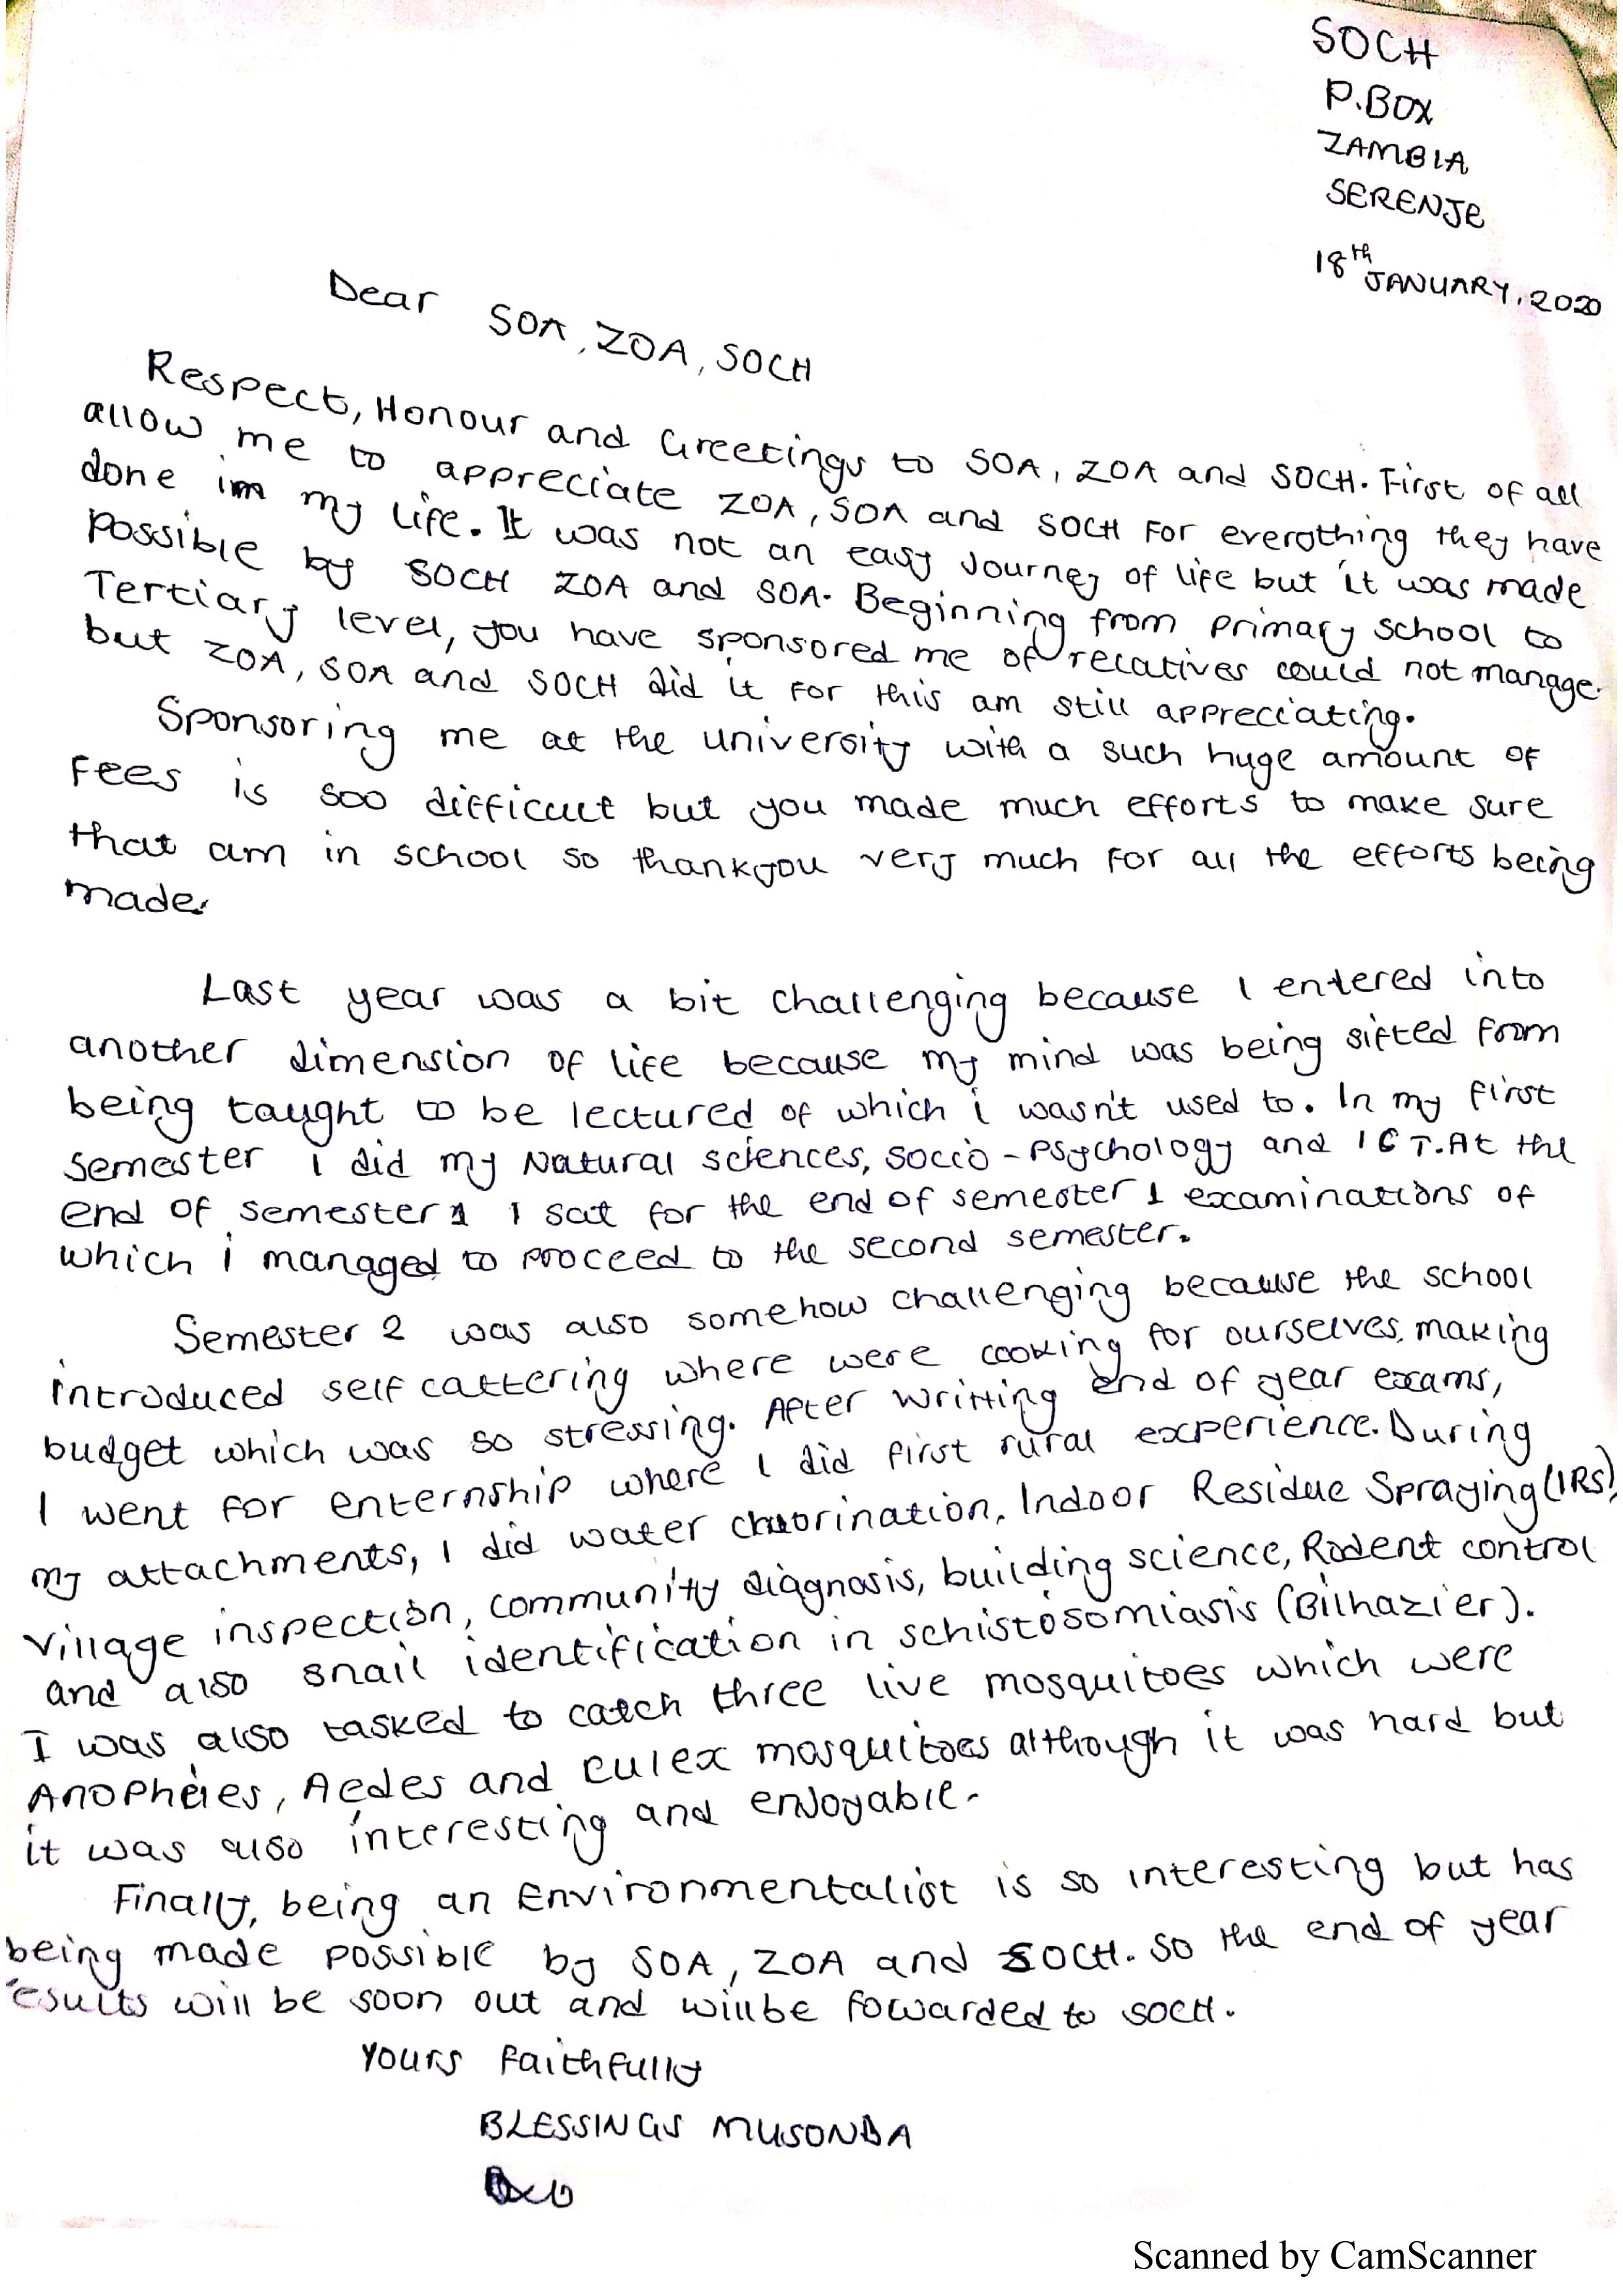 SOCH
P.BOX
ZAMBIA
SERENJE
18th JANUARY, 2020
Dear SOA, ZOA, SOCH
Respect, Honour and Greetings to SOA, ZOA and SOCH. First of all
allow me to appreciate ZOA, SOA and SOCH For everything they have
done im my life. It was not an easy Journey of life but it was made
possible by SOCH ZOA and SOA. Beginning from primary school to
Tertiary level, you have sponsored me of relatives could not manage
but ZOA, SOA and SOCH did it For this am still appreciating.
Sponsoring me at the university with a such huge amount of
Fees is soo difficult but you made much efforts to make sure
that am in school so thankyou very much For all the efforts being
made.
Last year was a bit challenging because I entered into
another dimension of life because my mind was being sifted from
being taught to be lectured of which i wasn't used to. In my first
semester I did my Natural sciences, socio-Psychology and ICT. At the
end of semester 1 I sat for the end of semester 1 examinations of
which i managed to proceed to the second semester.
Semester 2 was also somehow challenging because the school
introduced self cattering where were cooking for ourselves, making
budget which was so stressing. After writting end of year exams,
I went for enternship where I did first rural experience. During
my attachments, I did water chlorination, Indoor Residue Spraying (IRS),
Village inspection, community diagnosis, building science, Rodent control
and also snail identification in schistosomiasis (Bilhazier).
I was also tasked to catch three live mosquitoes which were
Anopheles, Aedes and culex mosquitoes although it was hard but
it was also interesting and enjoyable.
Finally, being an Environmentalist is so interesting but has
being made possible by SOA, ZOA and SOCH. So the end of year
esults will be soon out and will be fowarded to SOCH.
Yours Faithfully
BLESSINGS MUSONDA
Scanned by CamScanner